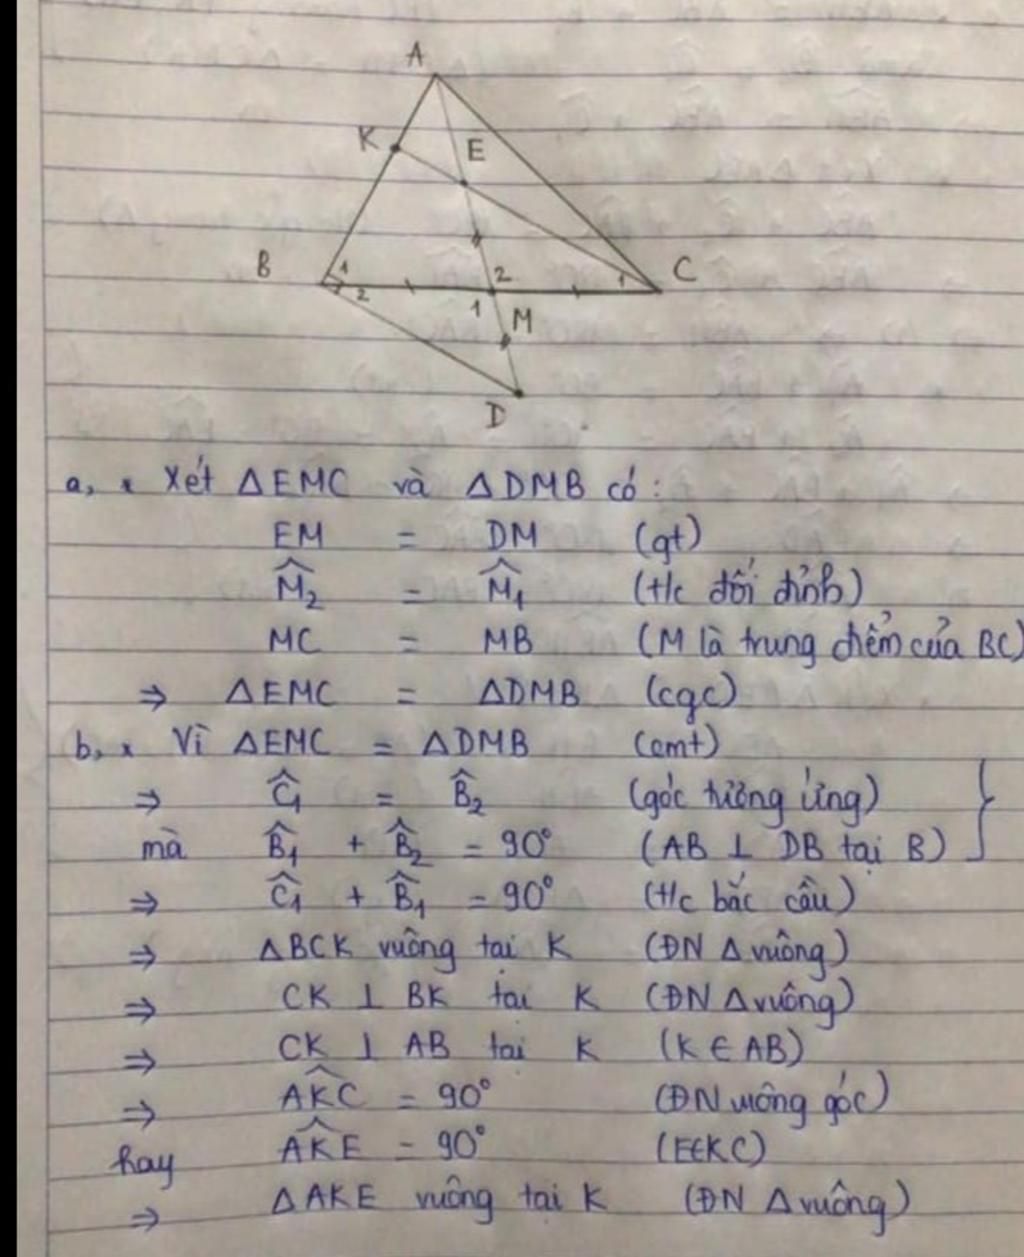 A
K
E
B
1
2
2
1
C
1
M
D
a, * Xét ΔEMC và ΔDMB có:
EM = DM (gt)
M̂₂ = M̂₁ (t/c đối đỉnh)
MC = MB (M là trung điểm của BC)
⇒ ΔEMC = ΔDMB (cgc)
b, * Vì ΔEMC = ΔDMB (cmt)
⇒ Ĉ₁ = B̂₂ (góc tương ứng)
mà B̂₁ + B̂₂ = 90° (AB ⊥ DB tại B)
⇒ Ĉ₁ + B̂₁ = 90° (t/c bắc cầu)
⇒ ΔBCK vuông tại K (ĐN Δ vuông)
⇒ CK ⊥ BK tại K (ĐN Δ vuông)
⇒ CK ⊥ AB tại K (K ∈ AB)
⇒ AK̂C = 90° (ĐN vuông góc)
hay AK̂E = 90° (E∈KC)
⇒ ΔAKE vuông tại K (ĐN Δ vuông)